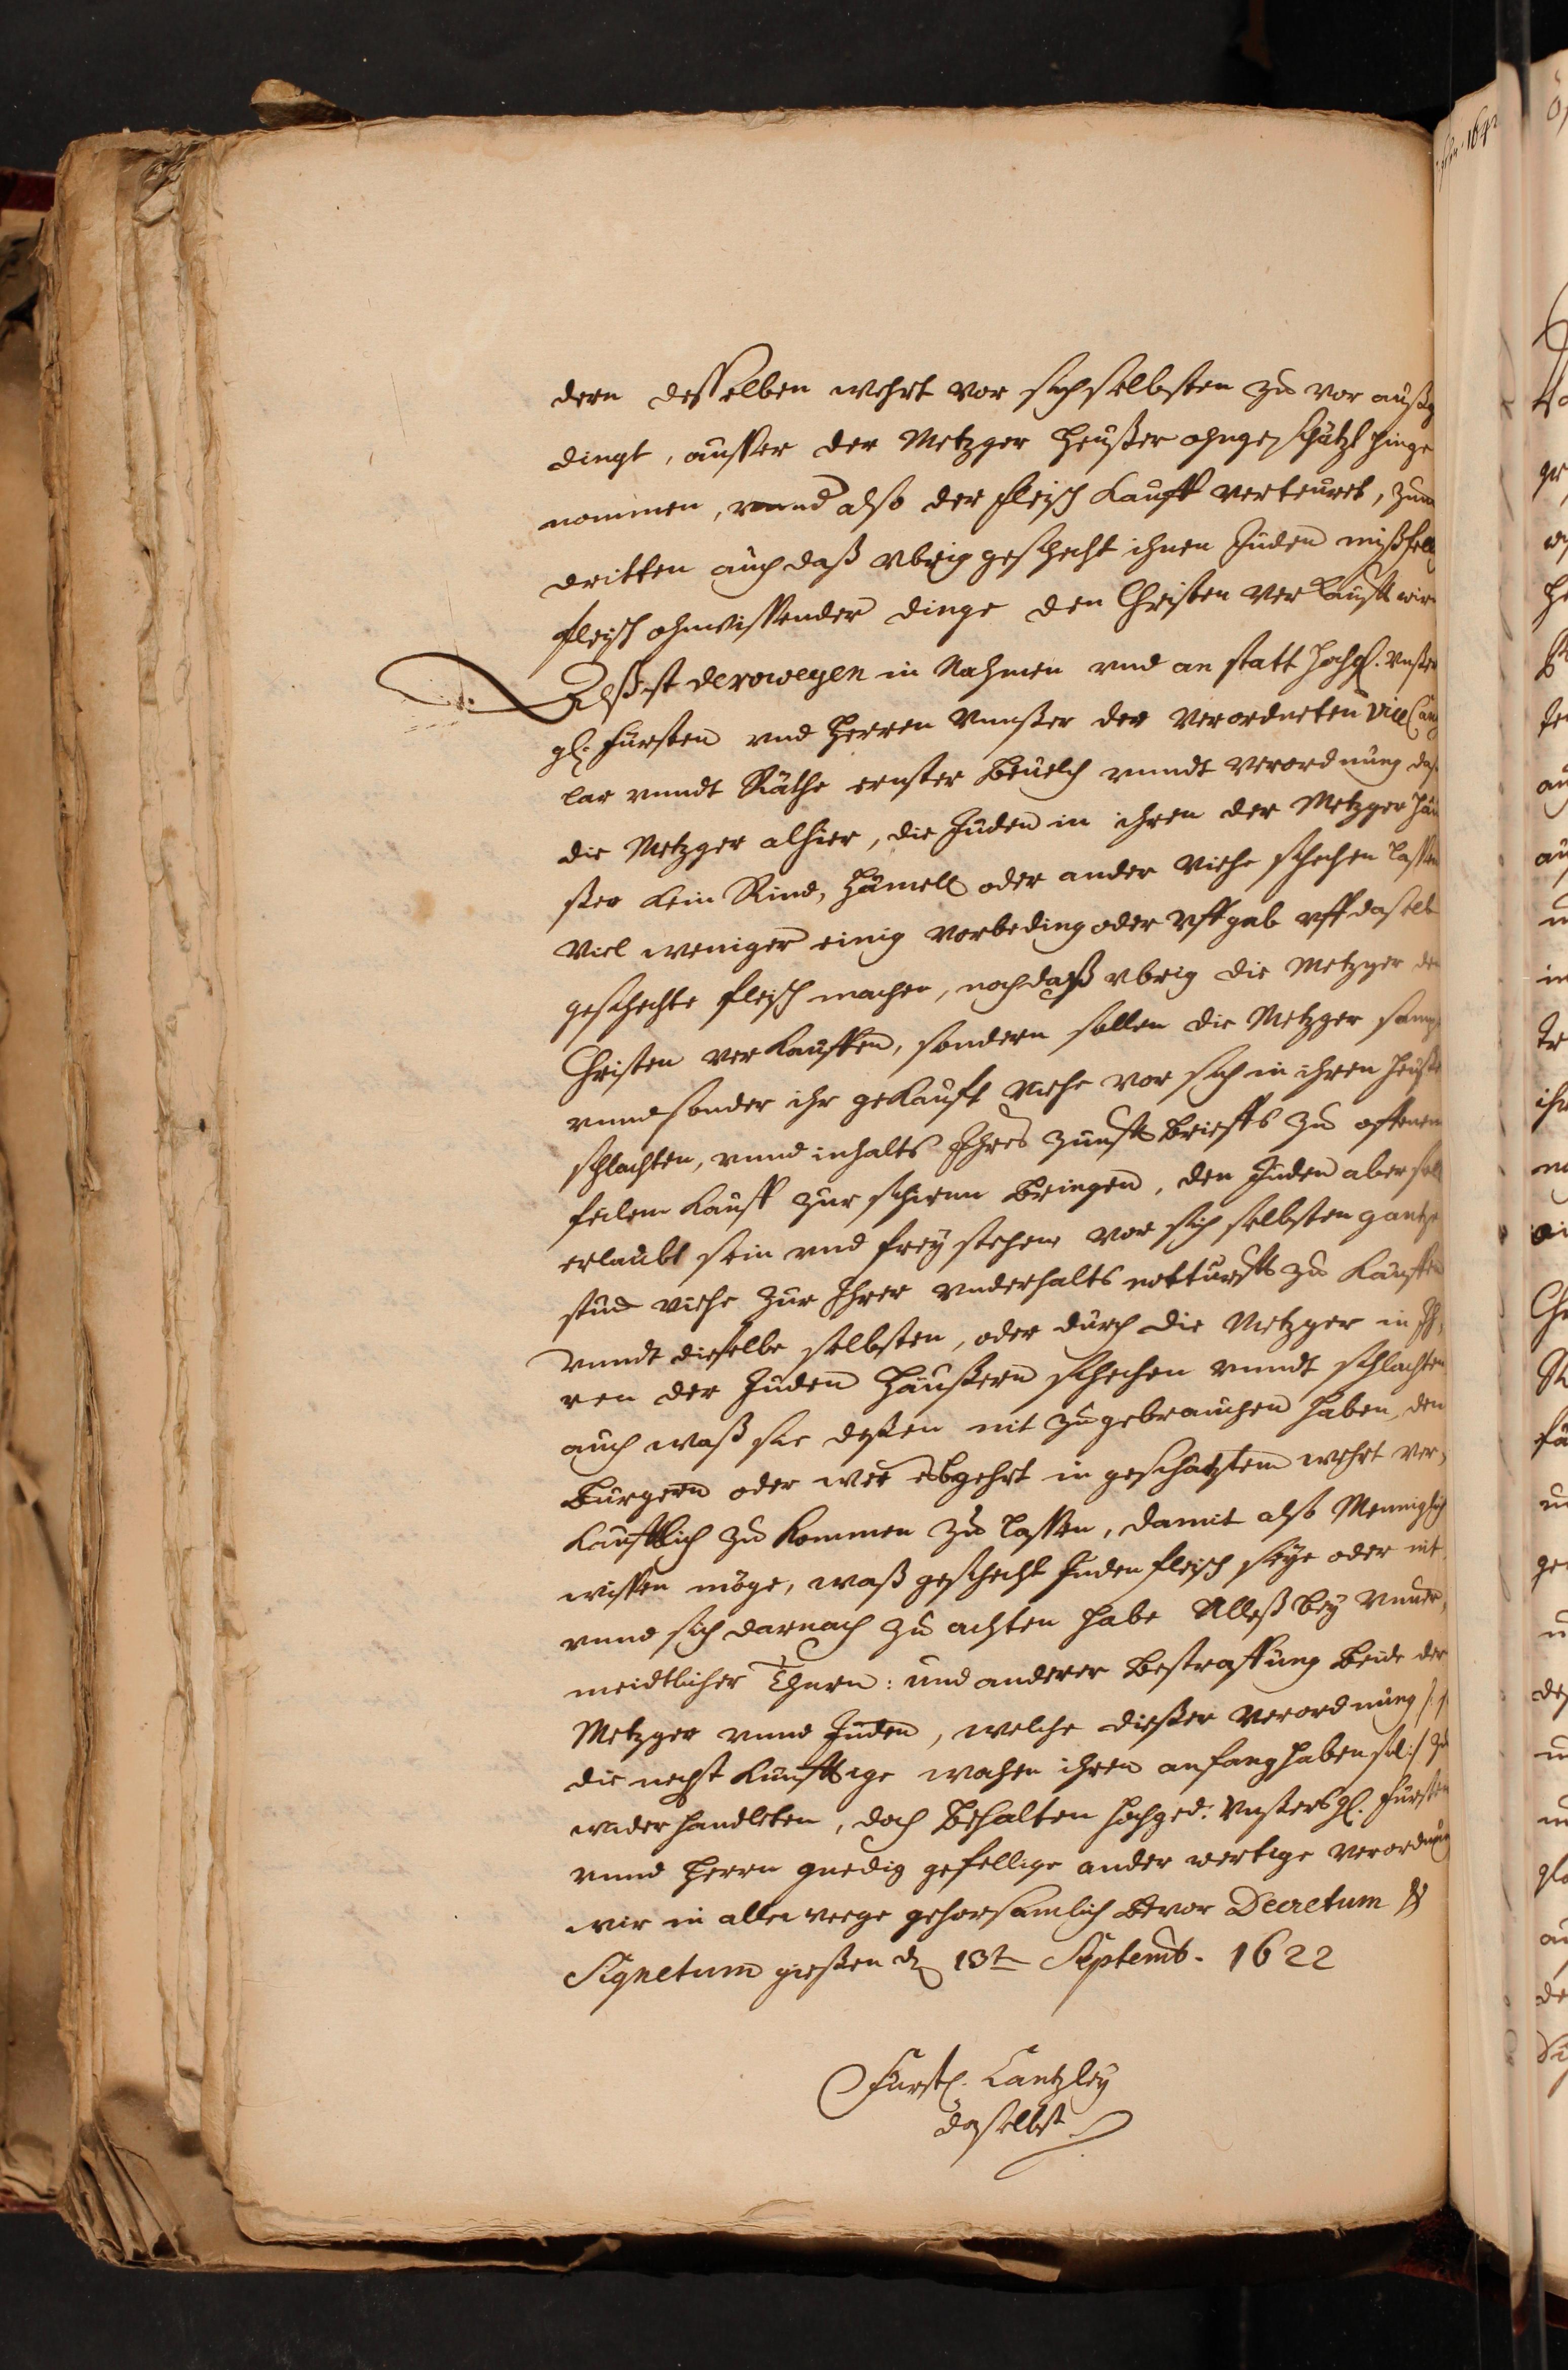 dern desselben wehrt vor sich selbsten zu vor außg
dingt, ausser der Metzger Heußer ohngeschätzt hinge
nommen, vnnd also der fleisch Kauff verteuret, zum
dritten auch daß vbrig geschecht ihnen Juden mißfell
fleisch ohnwissender dinge den Christen verKaufft wir
Eß ist derowegen in Nahmen vnd an statt hochg. Vnßer
gl. Fürsten vnd Herren Vnnßer der Verordneten ViceCantz
lar vnndt Räthe ernster Beuelch vnndt Verordnung daß
die Metzger alhier, die Juden in ihren der Metzger Häu
ßer Kein Rind, Hämell oder ander Viehe schechen lassen
Viel weniger einig vorbeding oder vffgab vff daselb
geschechte fleisch machen, noch daß vbrig die Metzger den
Christen verKauffen, sondern sollen die Metzger samp
vnnd sonder ihr geKaufft Viehe vor sich in ihren Heuße
schlachten, vnnd inhalts Ihres zunfft Brieffs zu offenem
feilem Kauff zur schirnn Bringen, den Juden aber soll
erlaubt sein vnd frey stehen vor sich selbsten gantze
stück viehe zur Ihrer vnderhalts notturfft zu Kauffen
vnndt dieselbe selbsten, oder durch die Metzger in Ih,
ren der Juden Häußern schechen vnndt schlachten
auch waß sie deßen nit zugebrauchen haben, den
Bürgern oder wer eß begehrt in geschätztem wehrt ver,
Kaufflich zu Kommen zu lassen, damit also Menniglich
wissen möge, waß geschecht Juden fleisch seye oder nit
vnnd sich darnach zu achten habe Alleß bey vnuer,
meidtlicher Thurn: und anderer Bestraffung Beide der
Metzger vnnd Juden, welche dießer Verordnung /: s.
die nechst Künfftige wochen ihren anfang haben sol :/ zu
wider handleten, doch Behalten hochged: Vnßers gl. Fürsten
vnnd Herrn gnedig gefellige ander wertige verordnung
wir in alle weege gehorsamlich Bevor Decretum &
Signetum gießen d 13t Septemb. 1622
Fürstl. Cantzley
daselbst
1642